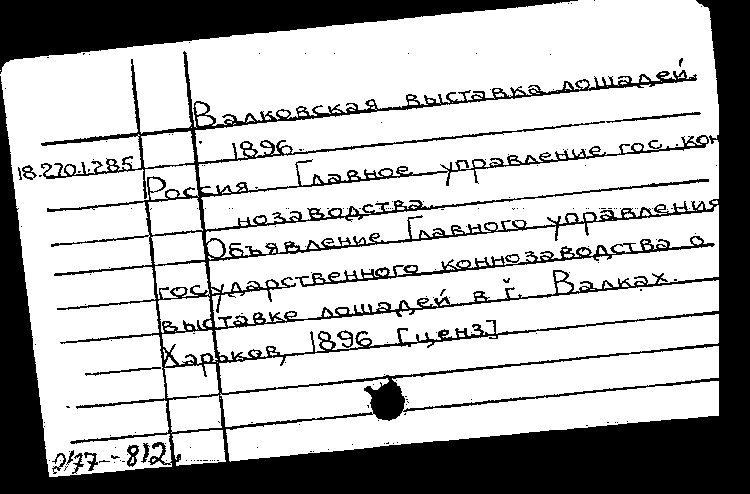 Валковская выставка лошадей.
1896.
18.270.1.285
Россия. Главное управление гос. кон
нозаводства.
Объявление Главного управления
государственного коннозаводства о
выставке лошадей в г. Валках.
Харьков, 1896 [ценз]
2/77 - 812